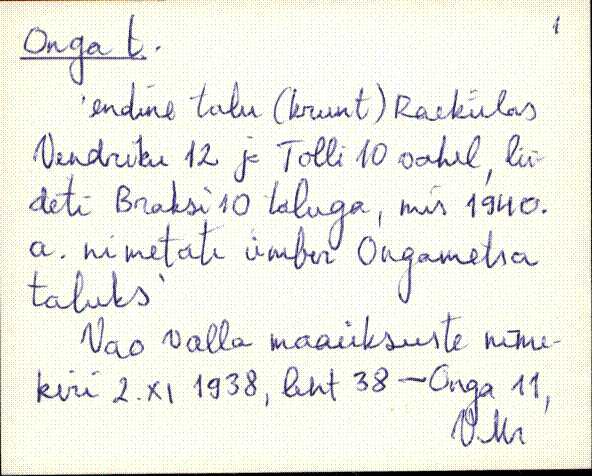 1
Onga t.
'endine talu (krunt) Raekülas
Vendriku 12 ja Tolli 10 vahel, lii-
deti Braksi 10 taluga, mis 1940.
a. nimetati ümber Ongametsa
taluks'
Vao valla maaüksuste nime-
kiri 2.XI 1938, leht 38 — Onga 11,